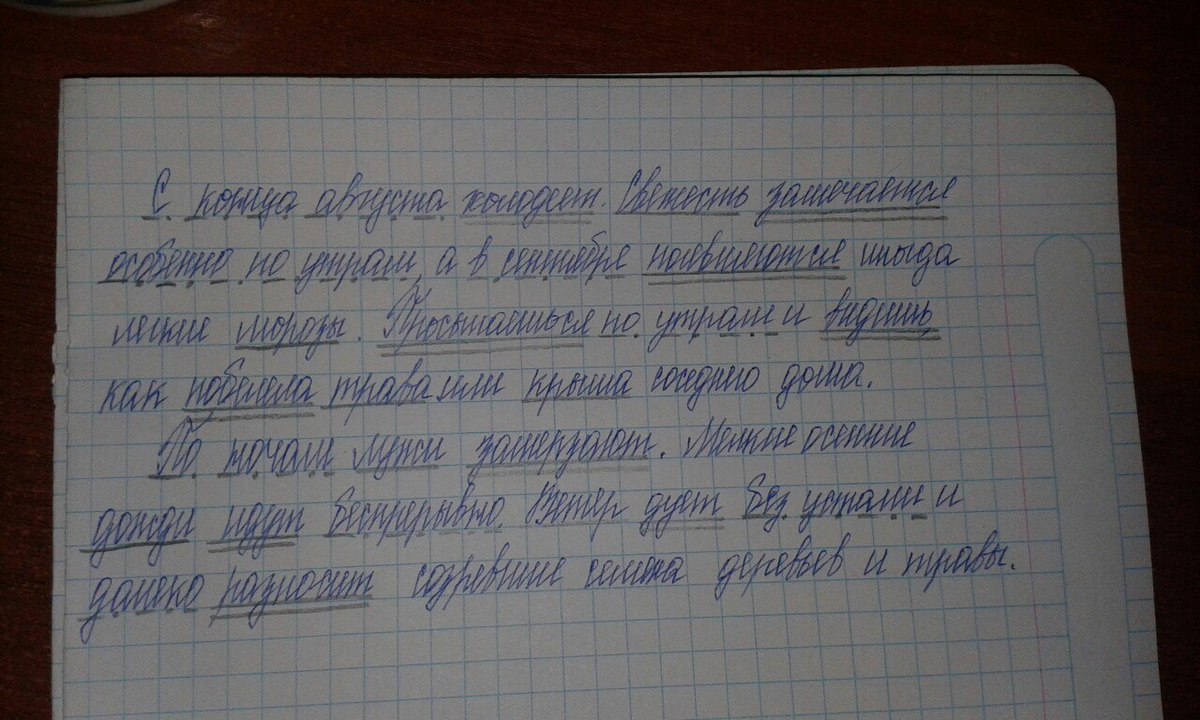 С конца августа холодает. Свежесть замечается
особенно по утрам, а в сентябре появляются иногда
легкие морозы. Просыпаешься по утрам и видишь
как побелела трава или крыша соседнего дома.
По ночам лужи замерзают. Мелкие осенние
дожди идут беспрерывно. Ветер дует без устали и
далеко разносит созревшие семена деревьев и травы.